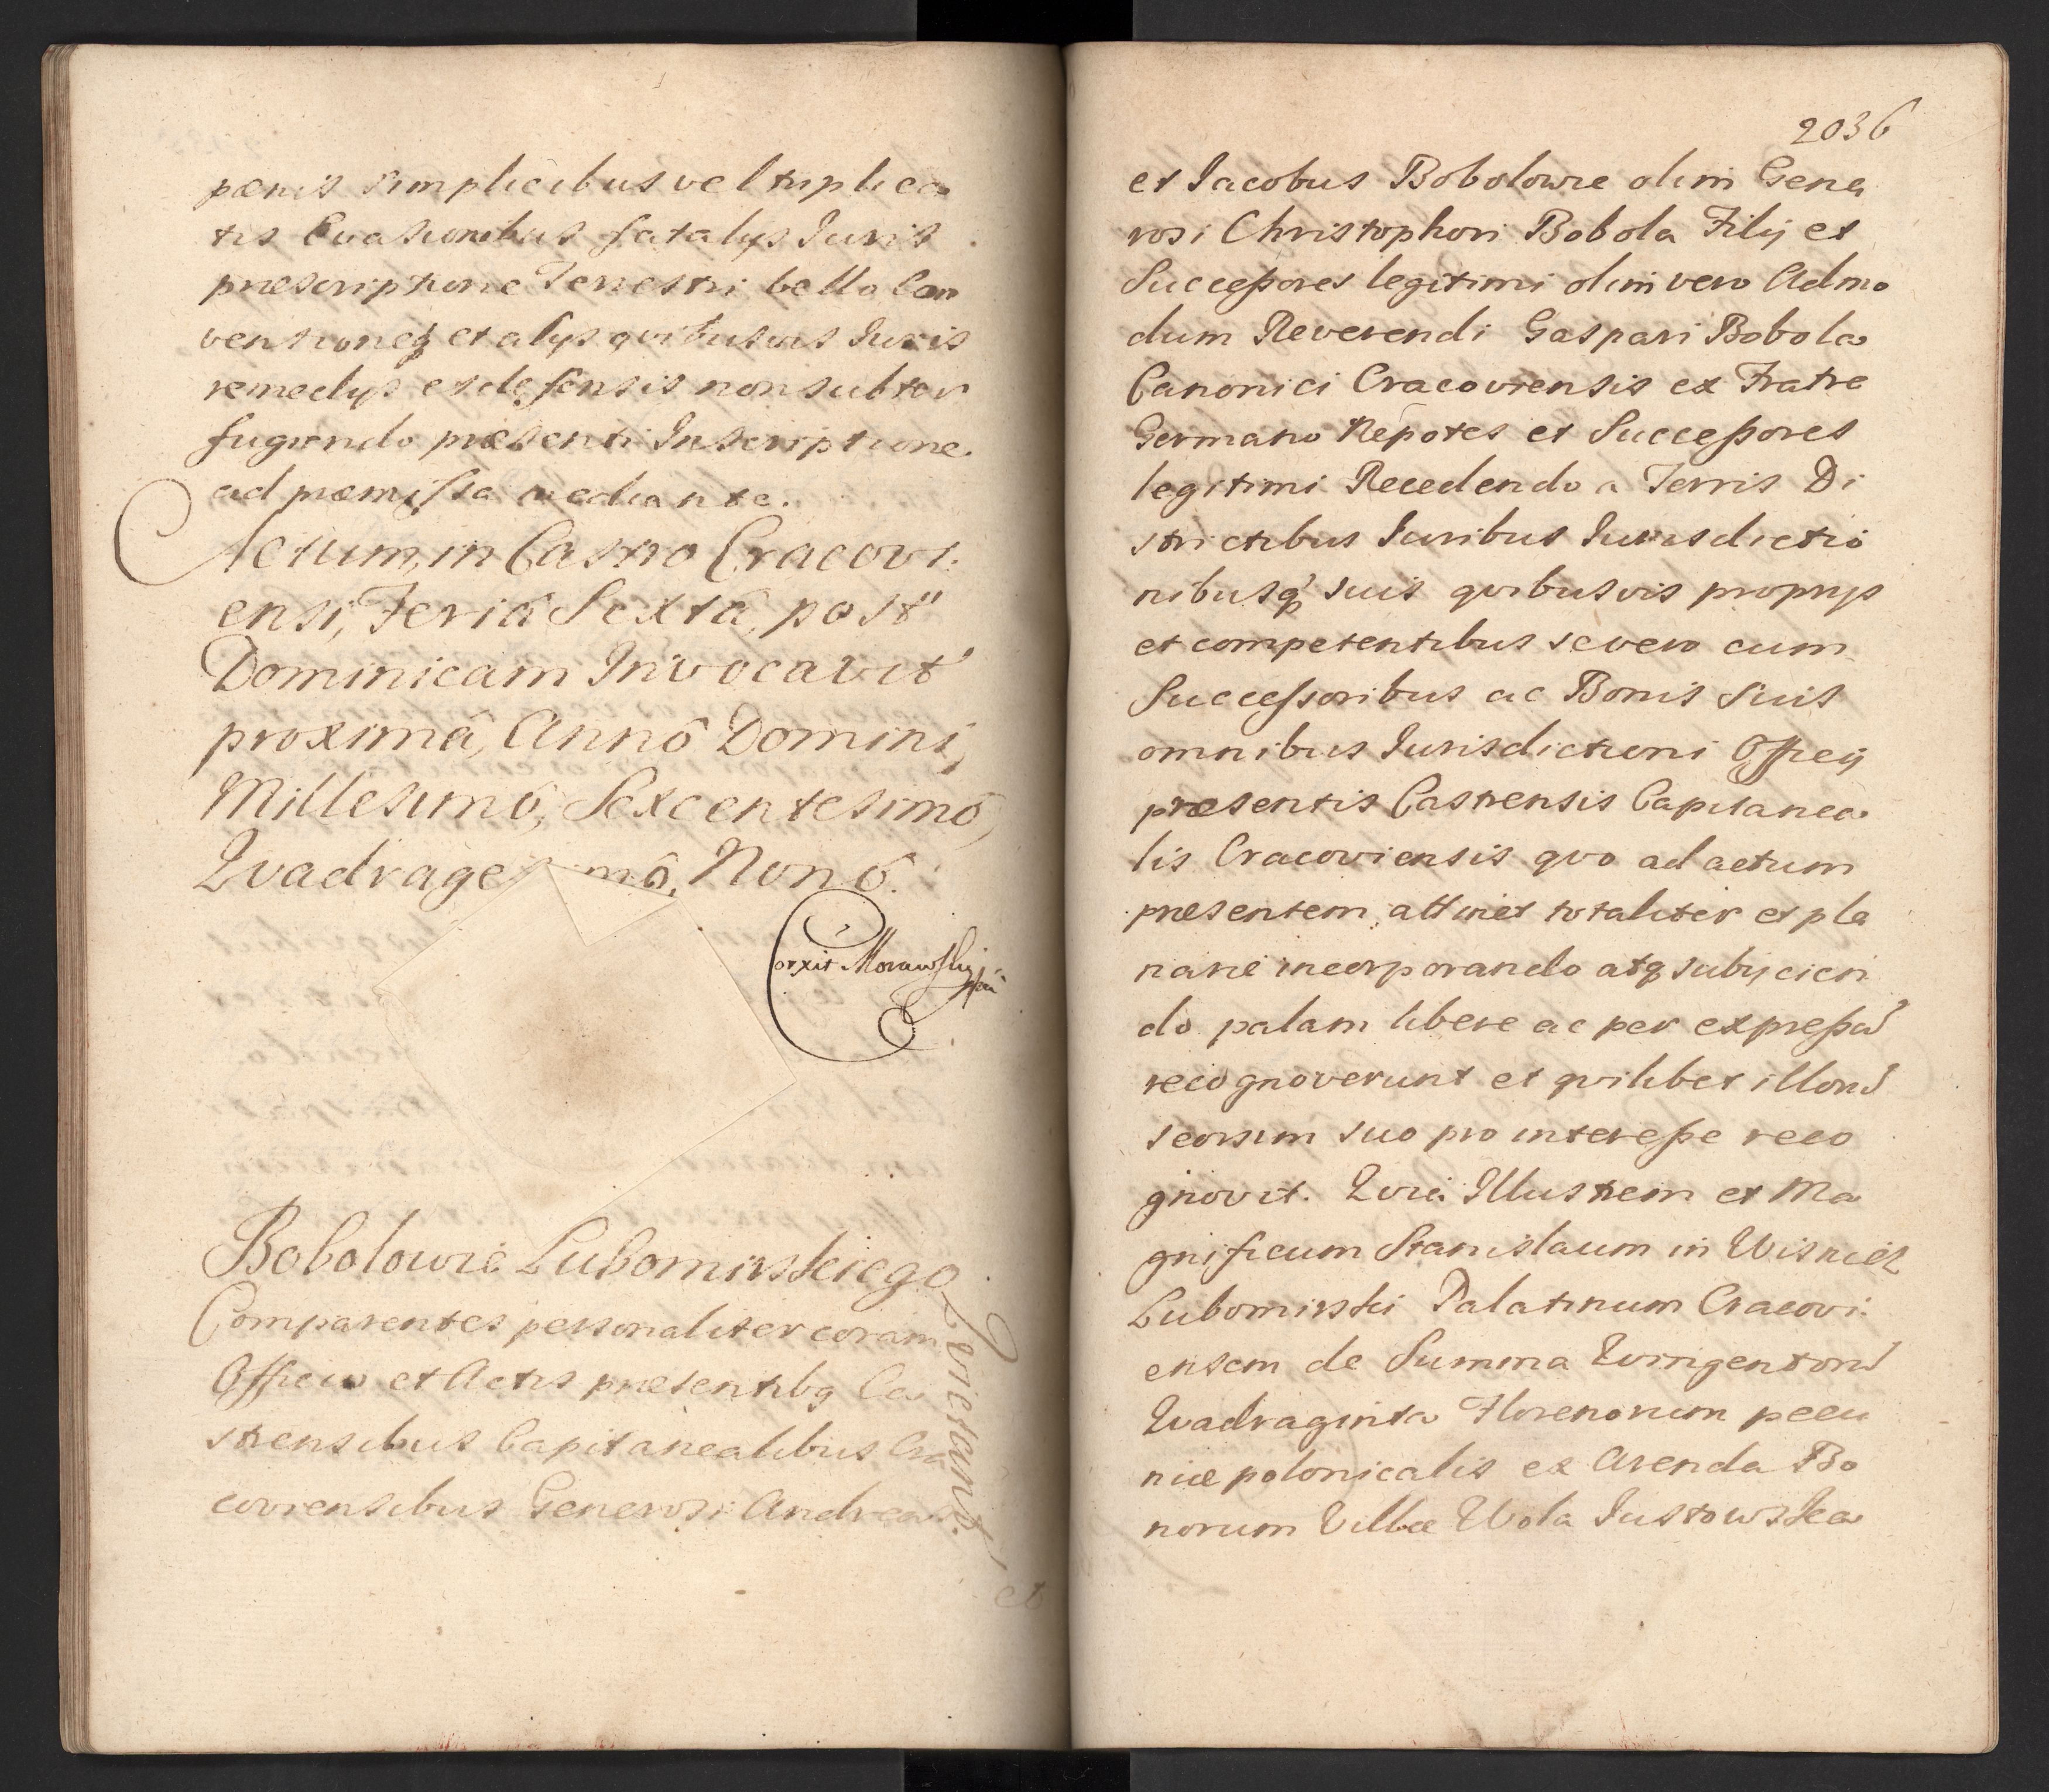 pœnis simplicibus vel triplica
tis Evasionibus fatalijs Iuris
præscriptione Terrestri bello Con
ventioneq et alijs quibusvis Iuris
remedijs et defensis non subter
fugiendo præsenti Inscriptione
ad præmissa mediante.
Actum, in Castro Cracovi
ensi, Feriâ Sextâ, post
Dominicam Invocavit
proximâ, Annô Domini,
Millesimô, Sexcentesimô,
Quadrage mô, Nonô.
Corxit Morawski
Bobolowie Lubomirskiego
Quietant.
Comparentes personaliter coram
Officio et Actis præsentibq Ca
strensibus Capitanealibus Cra
coviensibus Generosi Andreas
et
2036
et Iacobus Bobolowie olim Gene
rosi Christophori Bobola Filij et
Successores legitimi olim vero Admo
dum Reverendi Gaspari Bobola
Canonici Cracoviensis ex Fratre
Germano Nepotes et Successores
legitimi Recedendo a Terris Di
strictibus Iuribus Iurisdictio
nibusq suis quibusvis proprijs
et competentibus se vero cum
Successoribus ac Bonis suis
omnibus Iurisdictioni Officij
præsentis Castrensis Capitanea
lis Cracoviensis quo ad actum
præsentem attinet totaliter et ple
narie incorporando atq subijcien
do palam libere ac per expressũ
recognoverunt et quilibet illorũ
seorsim suo pro interesse reco
gnovit. Quia Illustrem et Ma
gnificum Stanislaum in Wisnicz
Lubomirski Palatinum Cracovi
ensem de Summa Quingentorũ
Quadraginta Florenorum pecu
niæ polonicalis ex Arenda Bo
norum Villæ Wola Iustowska